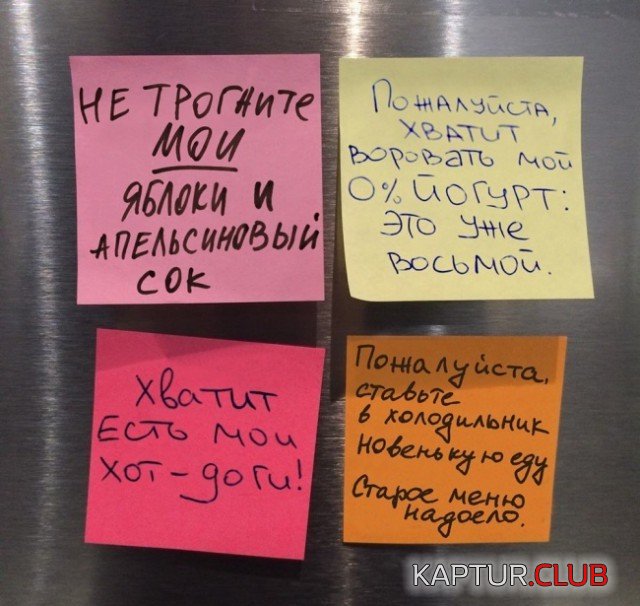 НЕ ТРОГАЙТЕ
МОИ
ЯБЛОКИ И
АПЕЛЬСИНОВЫЙ
СОК
ПОЖАЛУЙСТА,
ХВАТИТ
ВОРОВАТЬ МОЙ
0% ЙОГУРТ:
ЭТО УЖЕ
ВОСЬМОЙ.
Хватит
Есть мои
хот-доги!
Пожалуйста,
ставьте
в холодильник
новенькую еду
Старое меню
надоело.
KAPTUR.CLUB